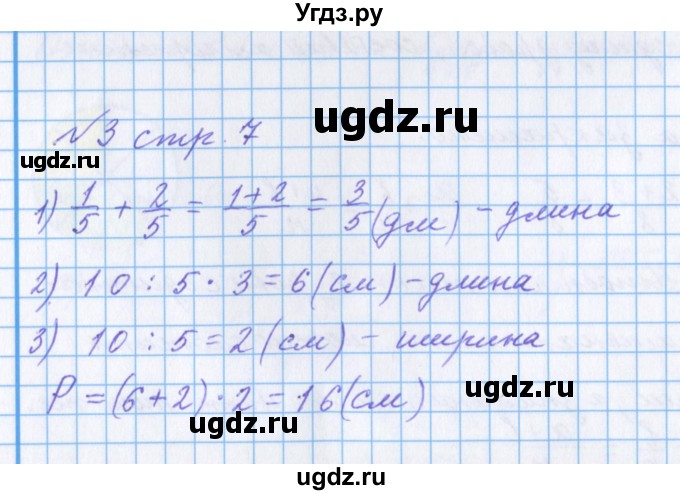 Угдз.ру
ugdz.ru
№3 стр. 7
ugdz.ru
ugdz.ru
1) 1/5 + 2/5 = 1+2/5 = 3/5 (дм) - длина
2) 10 : 5 · 3 = 6 (см) - длина
ugdz.ru
ugdz.ru
3) 10 : 5 = 2 (см) - ширина
P = (6+2) · 2 = 16 (см)
ugdz.ru
ugdz.ru